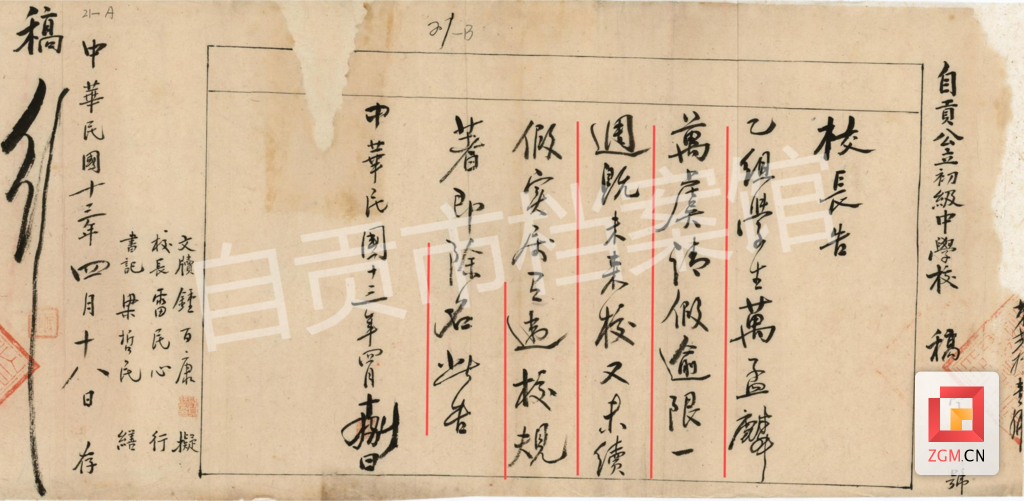 21-A
21-B
自貢公立初級中學校 稿
號
校長告
乙組學生萬孟麟
萬虞請假逾限一
週既未来校又未續
假实属有违校規
著即除名此告
中華民國十三年四月十捌日
文牘鍾百康 擬
校長雷民心 行
書記梁哲民 繕
中華民國十三年四月十八日 存
稿
行
自贡市档案馆
ZGM.CN